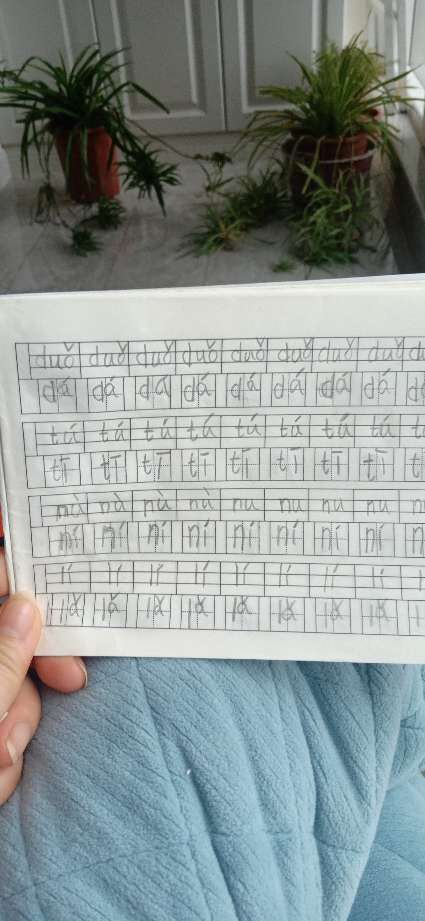 duǒ duǒ duǒ duǒ duǒ duǒ duǒ duǒ du
dá dá dá dá dá dá dá dá d
tú tú tú tú tú tú tú tú t
tī tī tī tī tī tī tī tī t
nà nà nà nà nu nu nu nu n
ní ní ní ní ní ní ní ní n
lí lí lí lí lí lí lí lí l
lǎ lǎ lǎ lǎ lǎ lǎ lǎ lǎ l